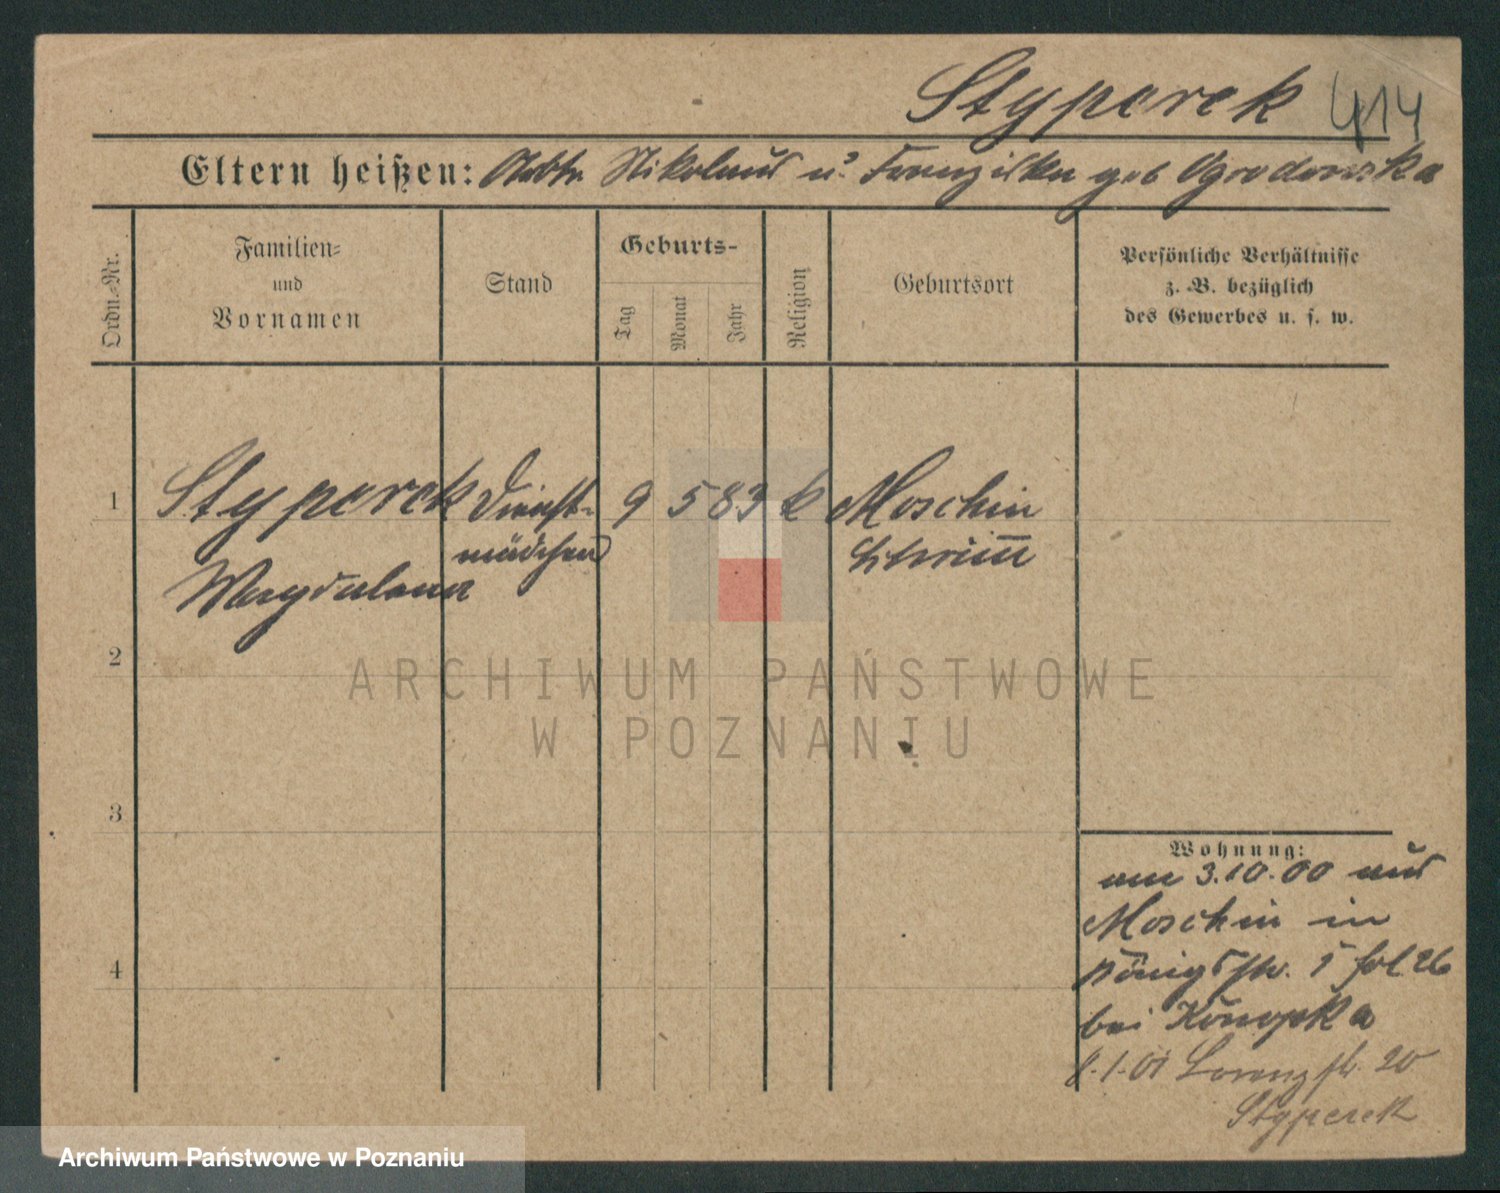 Styperek 414
Eltern heißen: Nikolaus u. Franziska geb Ogrodowska
Ordn.-Nr.
Familien-
und
Vornamen
Stand
Geburts-
Tag
Monat
Jahr
Religion
Geburtsort
Persönliche Verhältnisse
z. B. bezüglich
des Gewerbes u. s. w.
1 Styperek Dienst- 9 5 83 k Moschin
mädchen Schrimm
Magdalena
2
ARCHIWUM PAŃSTWOWE
W POZNANIU
3
Wohnung:
am 3.10.00 aus
Moschin in
Königstr. 5 fol 26
4
bei Konopka
8.1.01 Lorenzstr. 20
Styperek
Archiwum Państwowe w Poznaniu